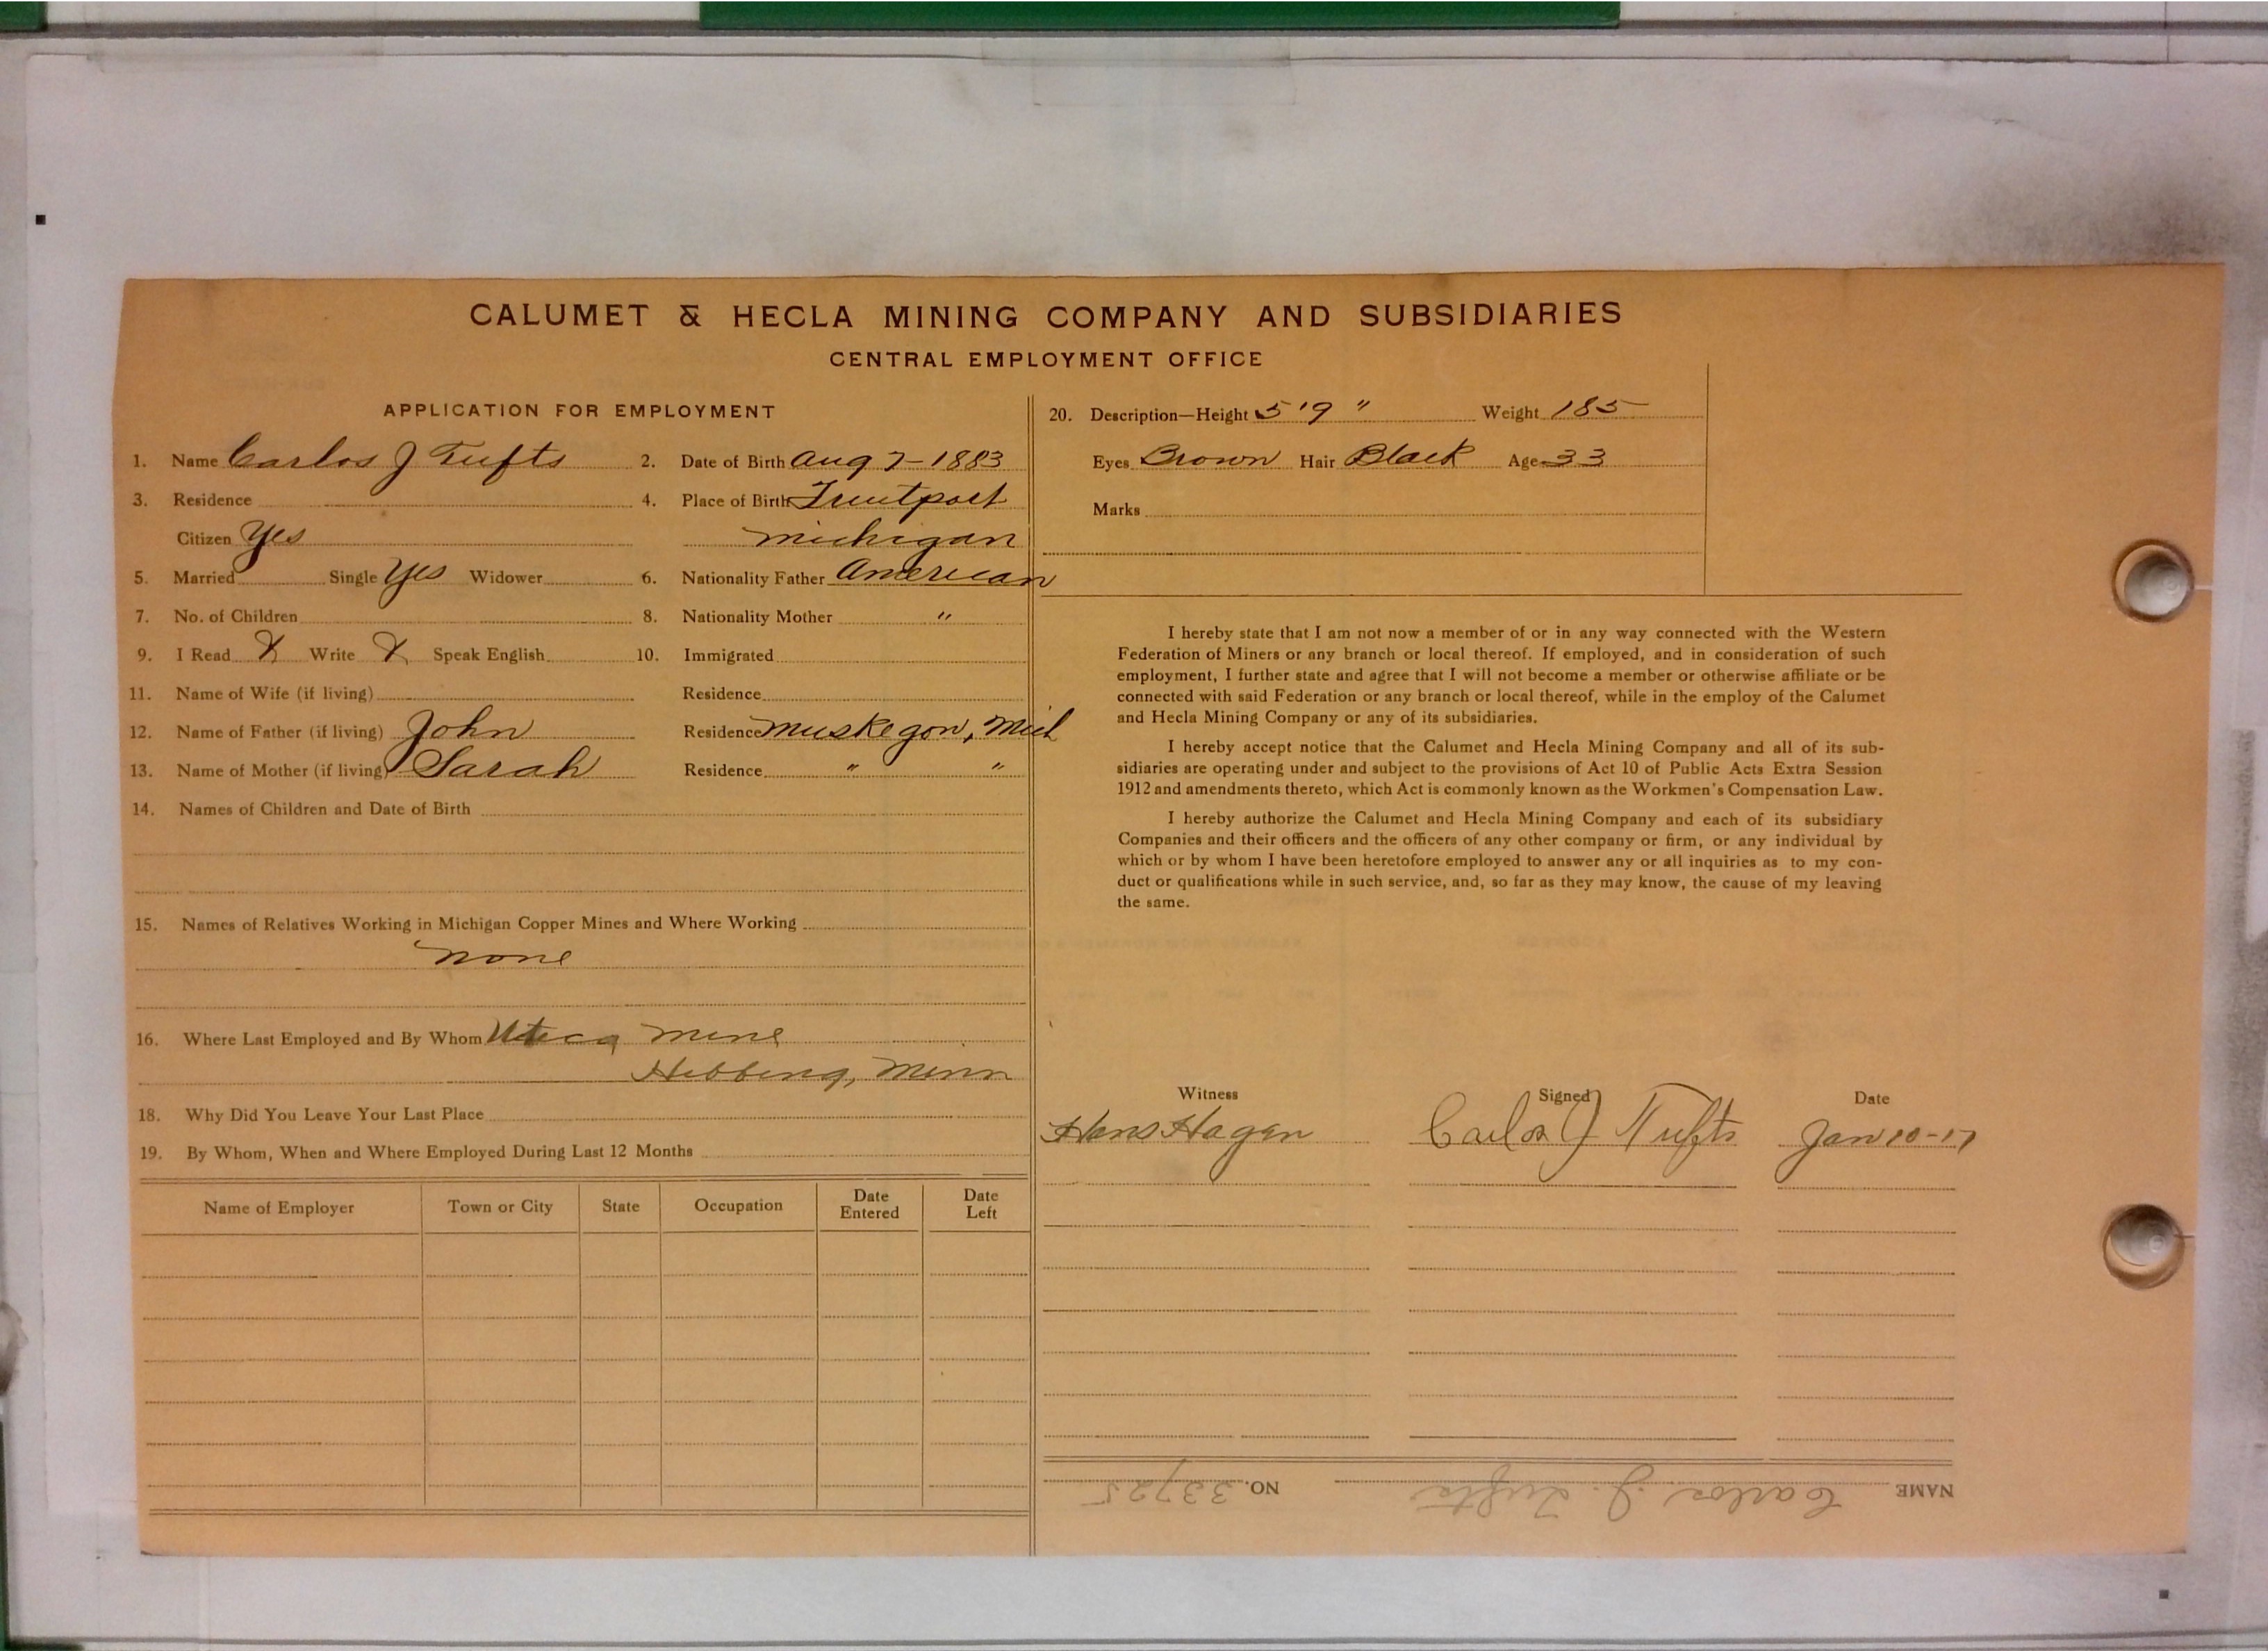 CALUMET & HECLA MINING COMPANY AND SUBSIDIARIES
CENTRAL EMPLOYMENT OFFICE
APPLICATION FOR EMPLOYMENT
1. Name Carlos J Tufts 2. Date of Birth Aug 7-1883
3. Residence 4. Place of Birth Fruitport
Citizen Yes Michigan
5. Married Single Yes Widower 6. Nationality Father American
7. No. of Children 8. Nationality Mother "
9. I Read X Write X Speak English 10. Immigrated
11. Name of Wife (if living) Residence
12. Name of Father (if living) John Residence Muskegon, Mich
13. Name of Mother (if living) Sarah Residence " "
14. Names of Children and Date of Birth
15. Names of Relatives Working in Michigan Copper Mines and Where Working
None
16. Where Last Employed and By Whom Utica Mine
Hibbing, Minn
18. Why Did You Leave Your Last Place
19. By Whom, When and Where Employed During Last 12 Months
Name of Employer Town or City State Occupation Date Entered Date Left
20. Description—Height 5'9" Weight 185
Eyes Brown Hair Black Age 33
Marks
I hereby state that I am not now a member of or in any way connected with the Western
Federation of Miners or any branch or local thereof. If employed, and in consideration of such
employment, I further state and agree that I will not become a member or otherwise affiliate or be
connected with said Federation or any branch or local thereof, while in the employ of the Calumet
and Hecla Mining Company or any of its subsidiaries.
I hereby accept notice that the Calumet and Hecla Mining Company and all of its sub-
sidiaries are operating under and subject to the provisions of Act 10 of Public Acts Extra Session
1912 and amendments thereto, which Act is commonly known as the Workmen's Compensation Law.
I hereby authorize the Calumet and Hecla Mining Company and each of its subsidiary
Companies and their officers and the officers of any other company or firm, or any individual by
which or by whom I have been heretofore employed to answer any or all inquiries as to my con-
duct or qualifications while in such service, and, so far as they may know, the cause of my leaving
the same.
Witness Signed Date
Hans Hagen Carlos J Tufts Jan 10-17
NAME Carlos J. Tufts NO. 33725